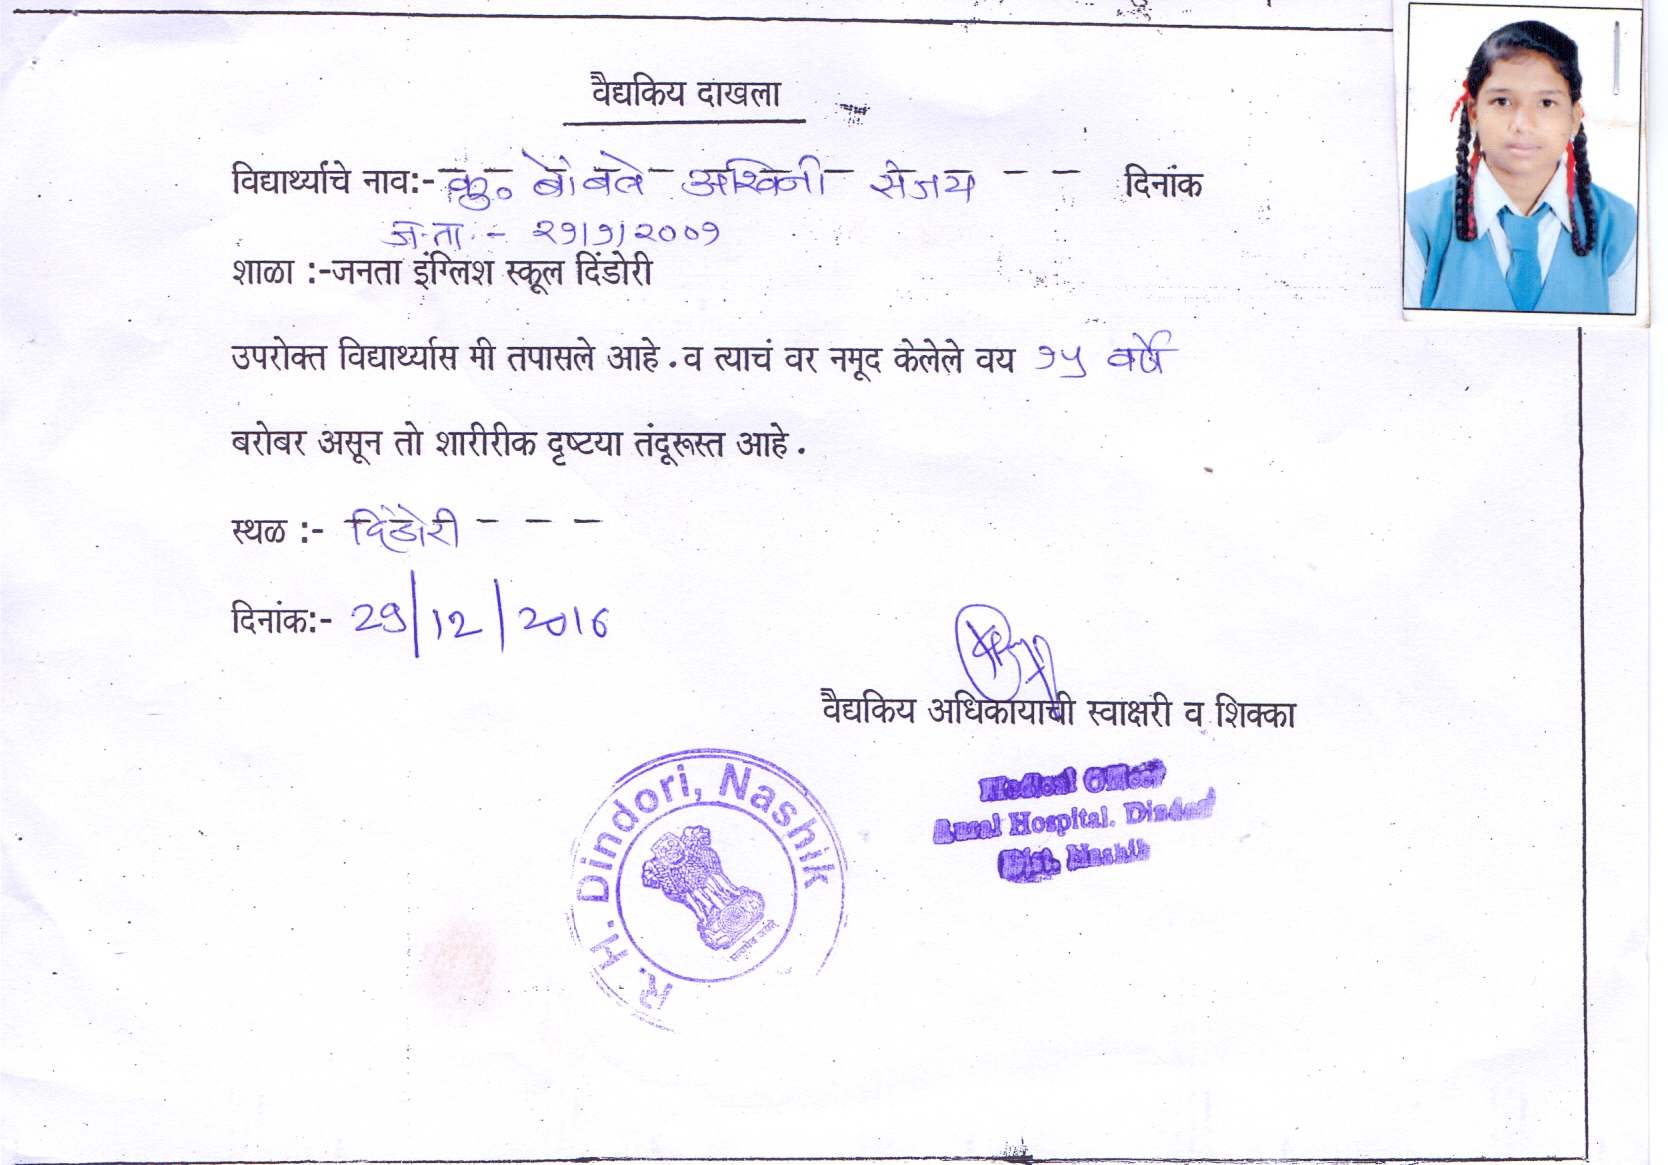 वैद्यकिय दाखला
विद्यार्थ्याचे नाव:- कु. बोंबले अश्विनी संजय - - दिनांक
ज.ता. - २१/१/२००१
शाळा :-जनता इंग्लिश स्कूल दिंडोरी
उपरोक्त विद्यार्थ्यास मी तपासले आहे.व त्याचं वर नमूद केलेले वय १५ वर्षे
बरोबर असून तो शारीरीक दृष्टया तंदूरूस्त आहे.
स्थळ :- दिंडोरी - - -
दिनांक:- 29/12/2016
वैद्यकिय अधिकायाची स्वाक्षरी व शिक्का
Medical Officer
Rural Hospital. Dindori
Dist. Nashik
R. H. Dindori, Nashik